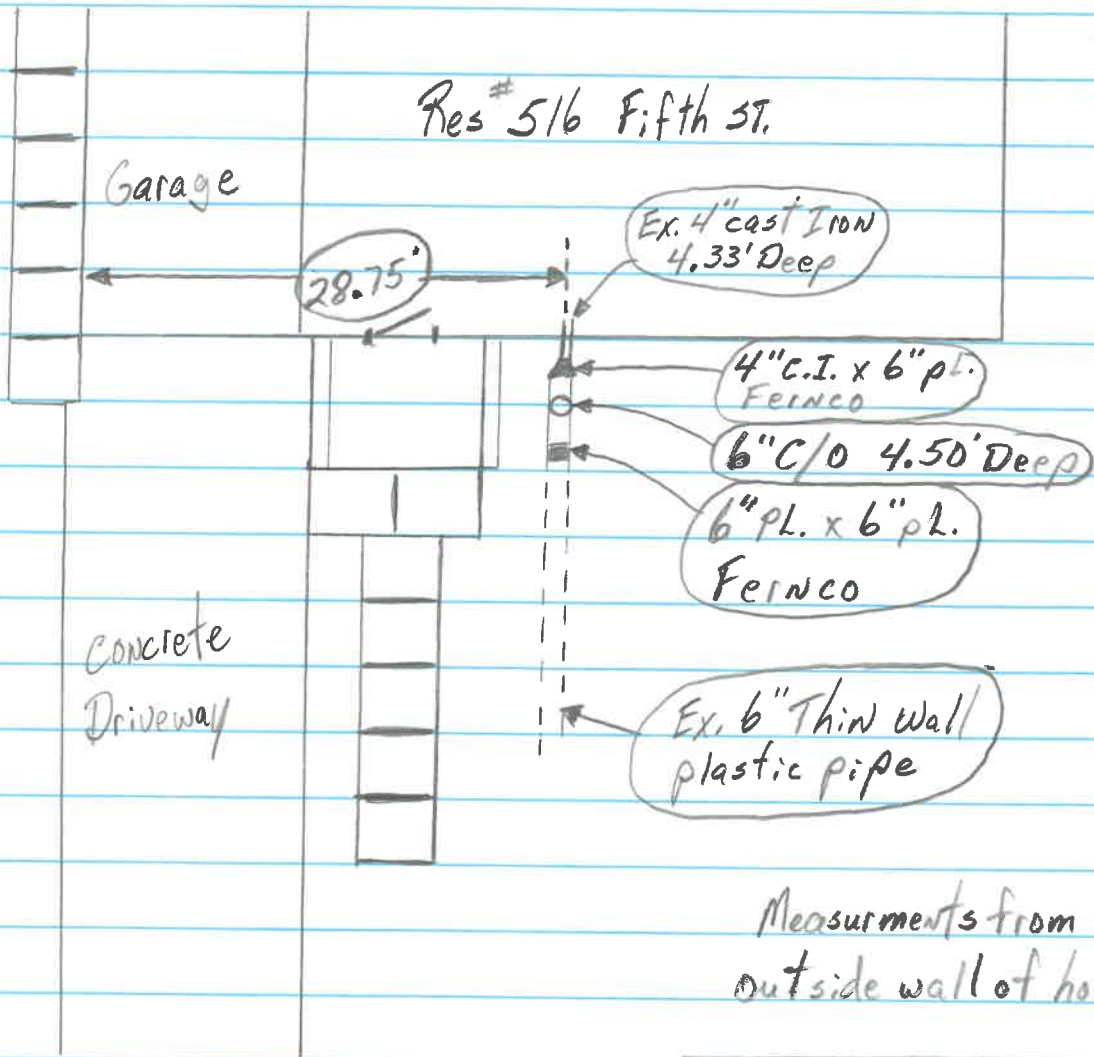 Res # 516 Fifth ST.
Garage
Ex. 4" cast Iron
4.33' Deep
28.75'
4" C.I. x 6" pL.
Fernco
6" C/O 4.50' Deep
6" PL. x 6" pL.
Fernco
Concrete
Driveway
Ex. 6" Thin Wall
plastic pipe
Measurments from
outside wall of ho